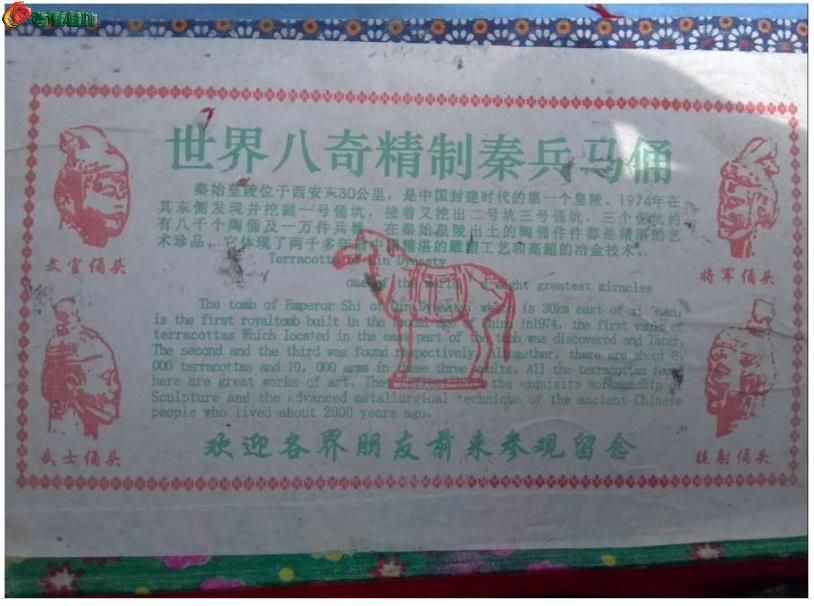 世界八奇精制秦兵马俑
秦始皇陵位于西安东30公里，是中国封建时代的第一个皇陵。1974年在
其东侧发现并挖掘一号俑坑，接着又挖出二号坑三号俑坑，三个俑坑约
有八千个陶俑及一万件兵器，在秦始皇陵出土的陶俑件件都是精湛的艺
术珍品，它体现了两千多年前中国精湛的雕塑工艺和高超的冶金技术。
文官俑头
将军俑头
Terracotta of Qin Dynasty
one of the world eight greatest miracles
The tomb of Emperor Shi of Qin Dynasty, which is 30km east of xi'an,
is the first royaltomb built in the age of in1974, the first vault of
terracottas Which located in the east part of the tomb was discovered and later,
The second and the third was found respectively. Altogather, there are about 8,
000 terracottas and 10, 000 arms in these three vaults. All the terracottas found
here are great works of art. They the exquisits workmanship of
Sculpture and the advanced metallurgical technique of the ancient Chinese
people who lived about 2000 years ago.
武士俑头
跪射俑头
欢迎各界朋友前来参观留念